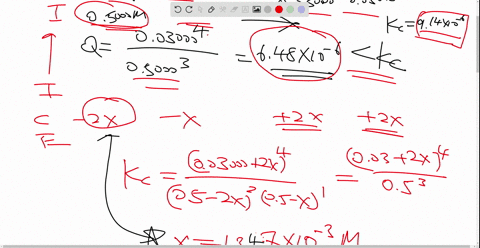 I 0.5000M
Kc = 9.14×10⁻⁶
Q = 0.03000⁴ / 0.5000³ = 6.48×10⁻⁶ < Kc
I
C -2x -x +2x +2x
E
Kc = (0.03000+2x)⁴ / (0.5-2x)² (0.5-x)¹ = (0.03+2x)⁴ / 0.5³
x = 1.347×10⁻³ M